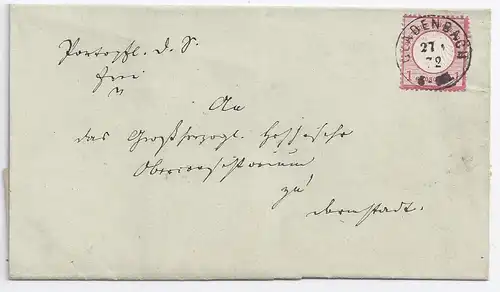 GLADENBACH
27
72
1
Portopfl. d. S.
frei
An
das Großherzogl. Hessische
Oberconsistorium
zu
Darmstadt.